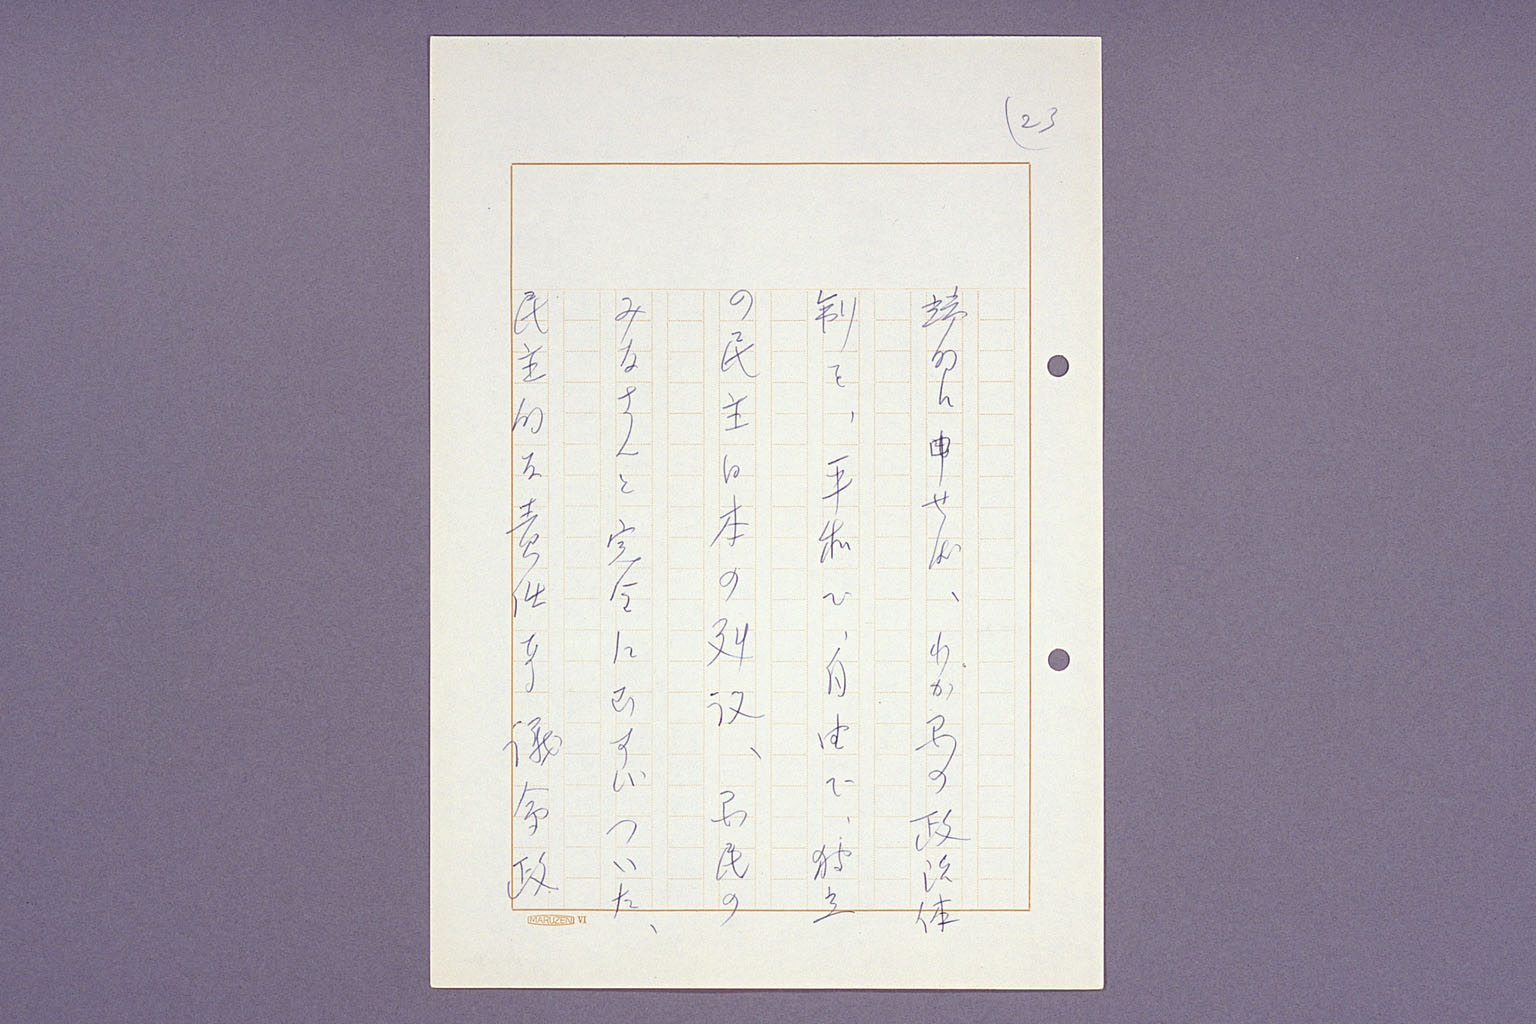 23
端的に申せば、わが国の政治体
制を、平和で、自由で、独立
の民主日本の列 、国民の
みなさんと完全にむすびついた、
民主的な責任ある議会政
MARUZEN VI